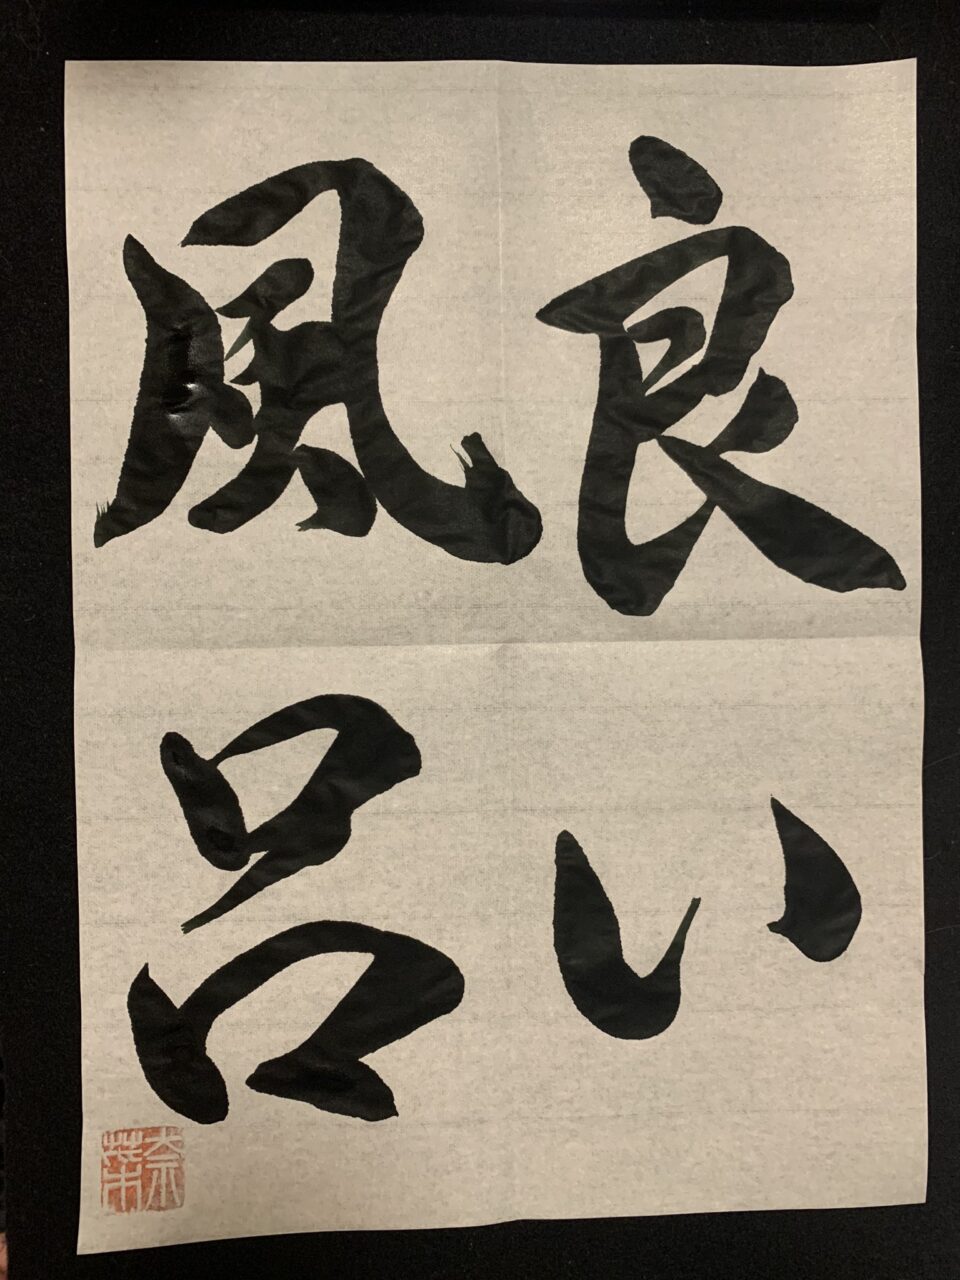 良い
風呂
奈